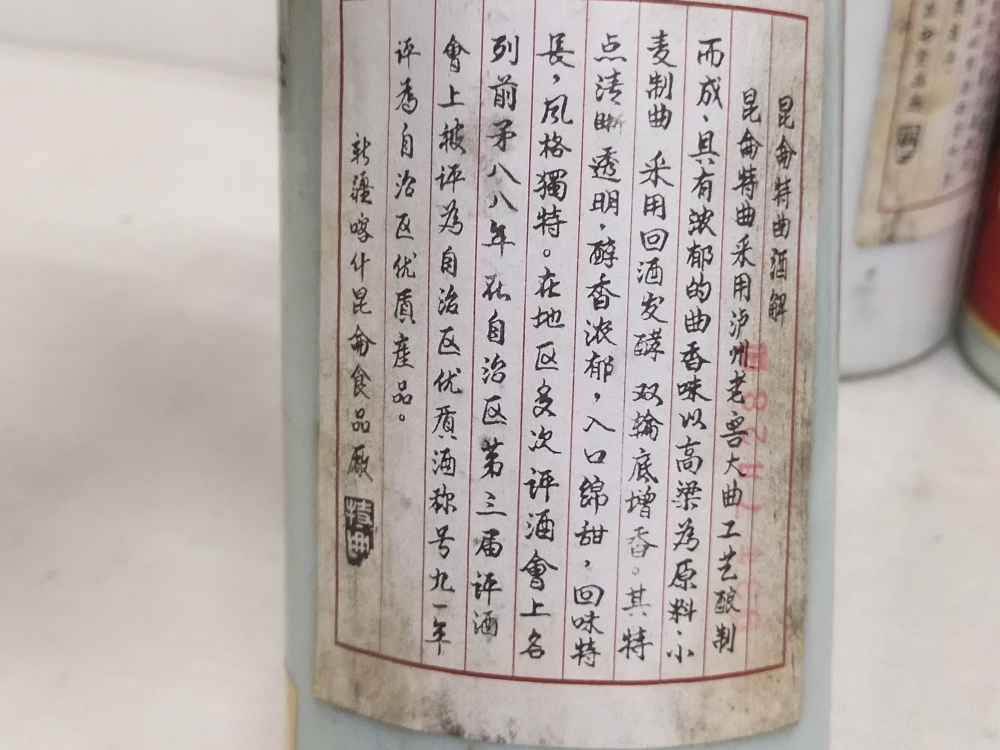 昆侖特曲酒解
昆侖特曲采用泸州老窖大曲工艺酿制
而成，具有浓郁的曲香味以高粱为原料，小
麦制曲 采用回酒发酵 双輪底增香。其特
点清晰透明，醇香浓郁，入口綿甜，回味特
長，风格獨特。在地区多次评酒會上名
列前矛八八年在自治区第三届评酒
會上被评為自治区优质酒称号九一年
评為自治区优质産品。
新疆喀什昆侖食品厰
特曲